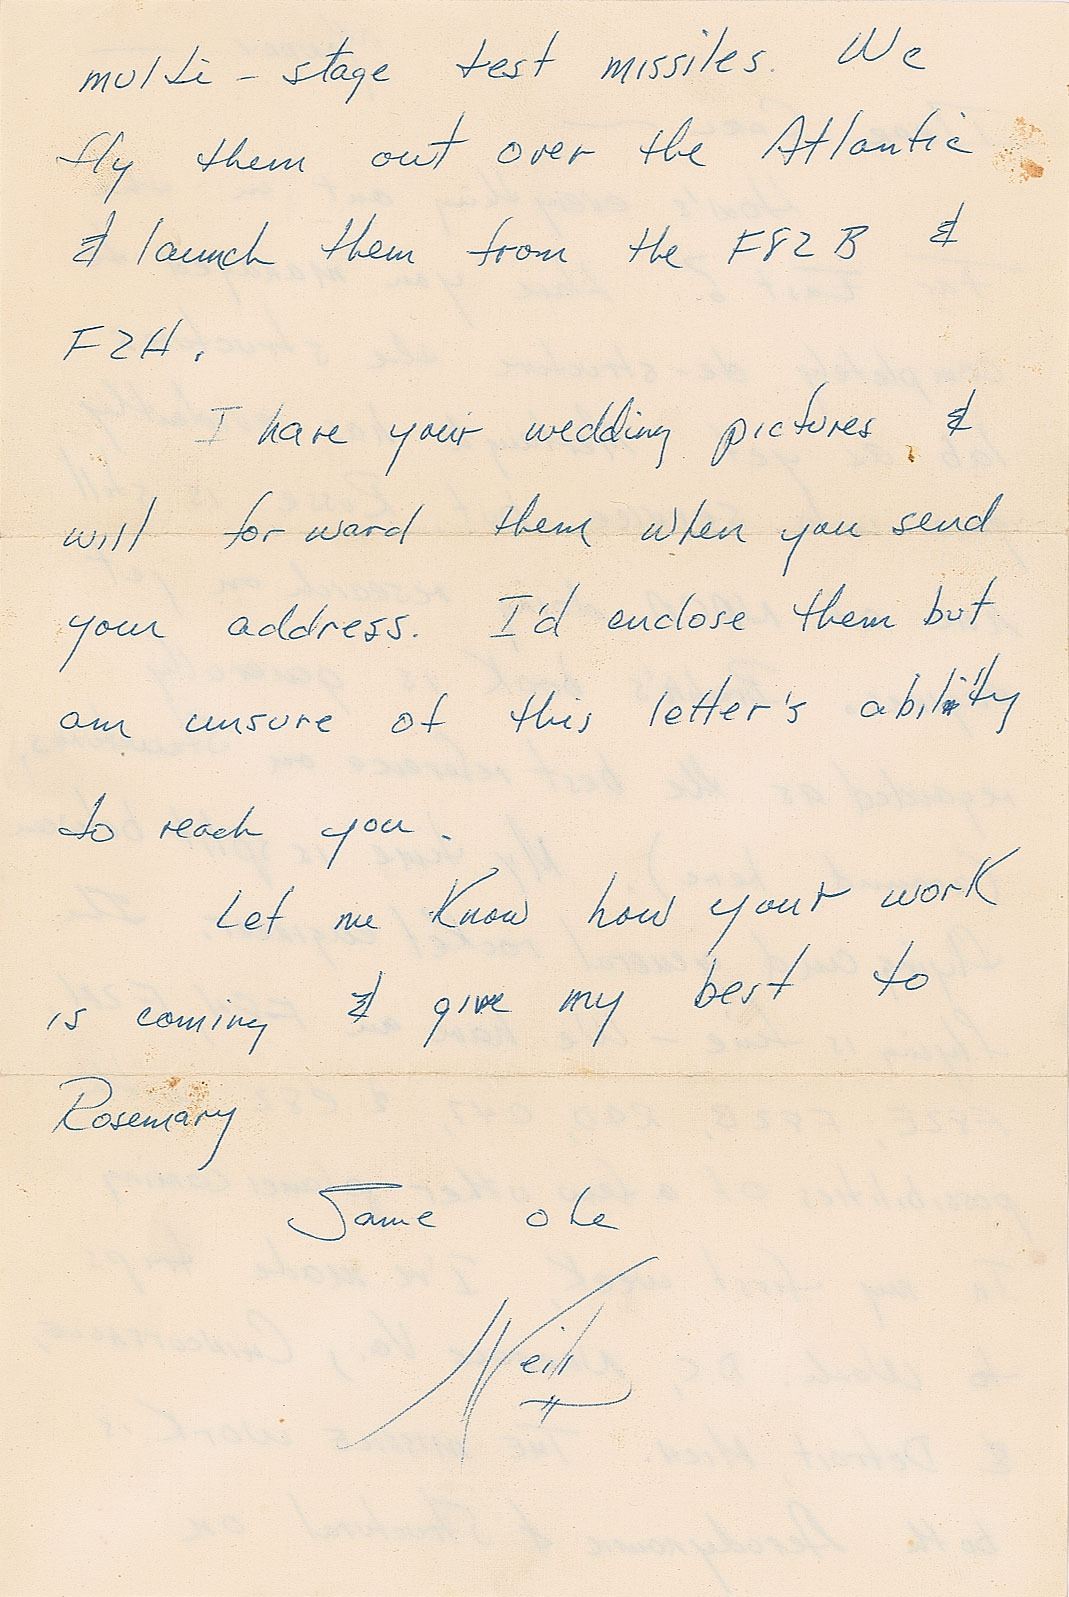 multi-stage test missiles. We
fly them out over the Atlantic
& launch them from the F82B &
F2H.
I have your wedding pictures &
will forward them when you send
your address. I'd enclose them but
am unsure of this letter's ability
to reach you.
Let me know how your work
is coming & give my best to
Rosemary
Same ole
Neil